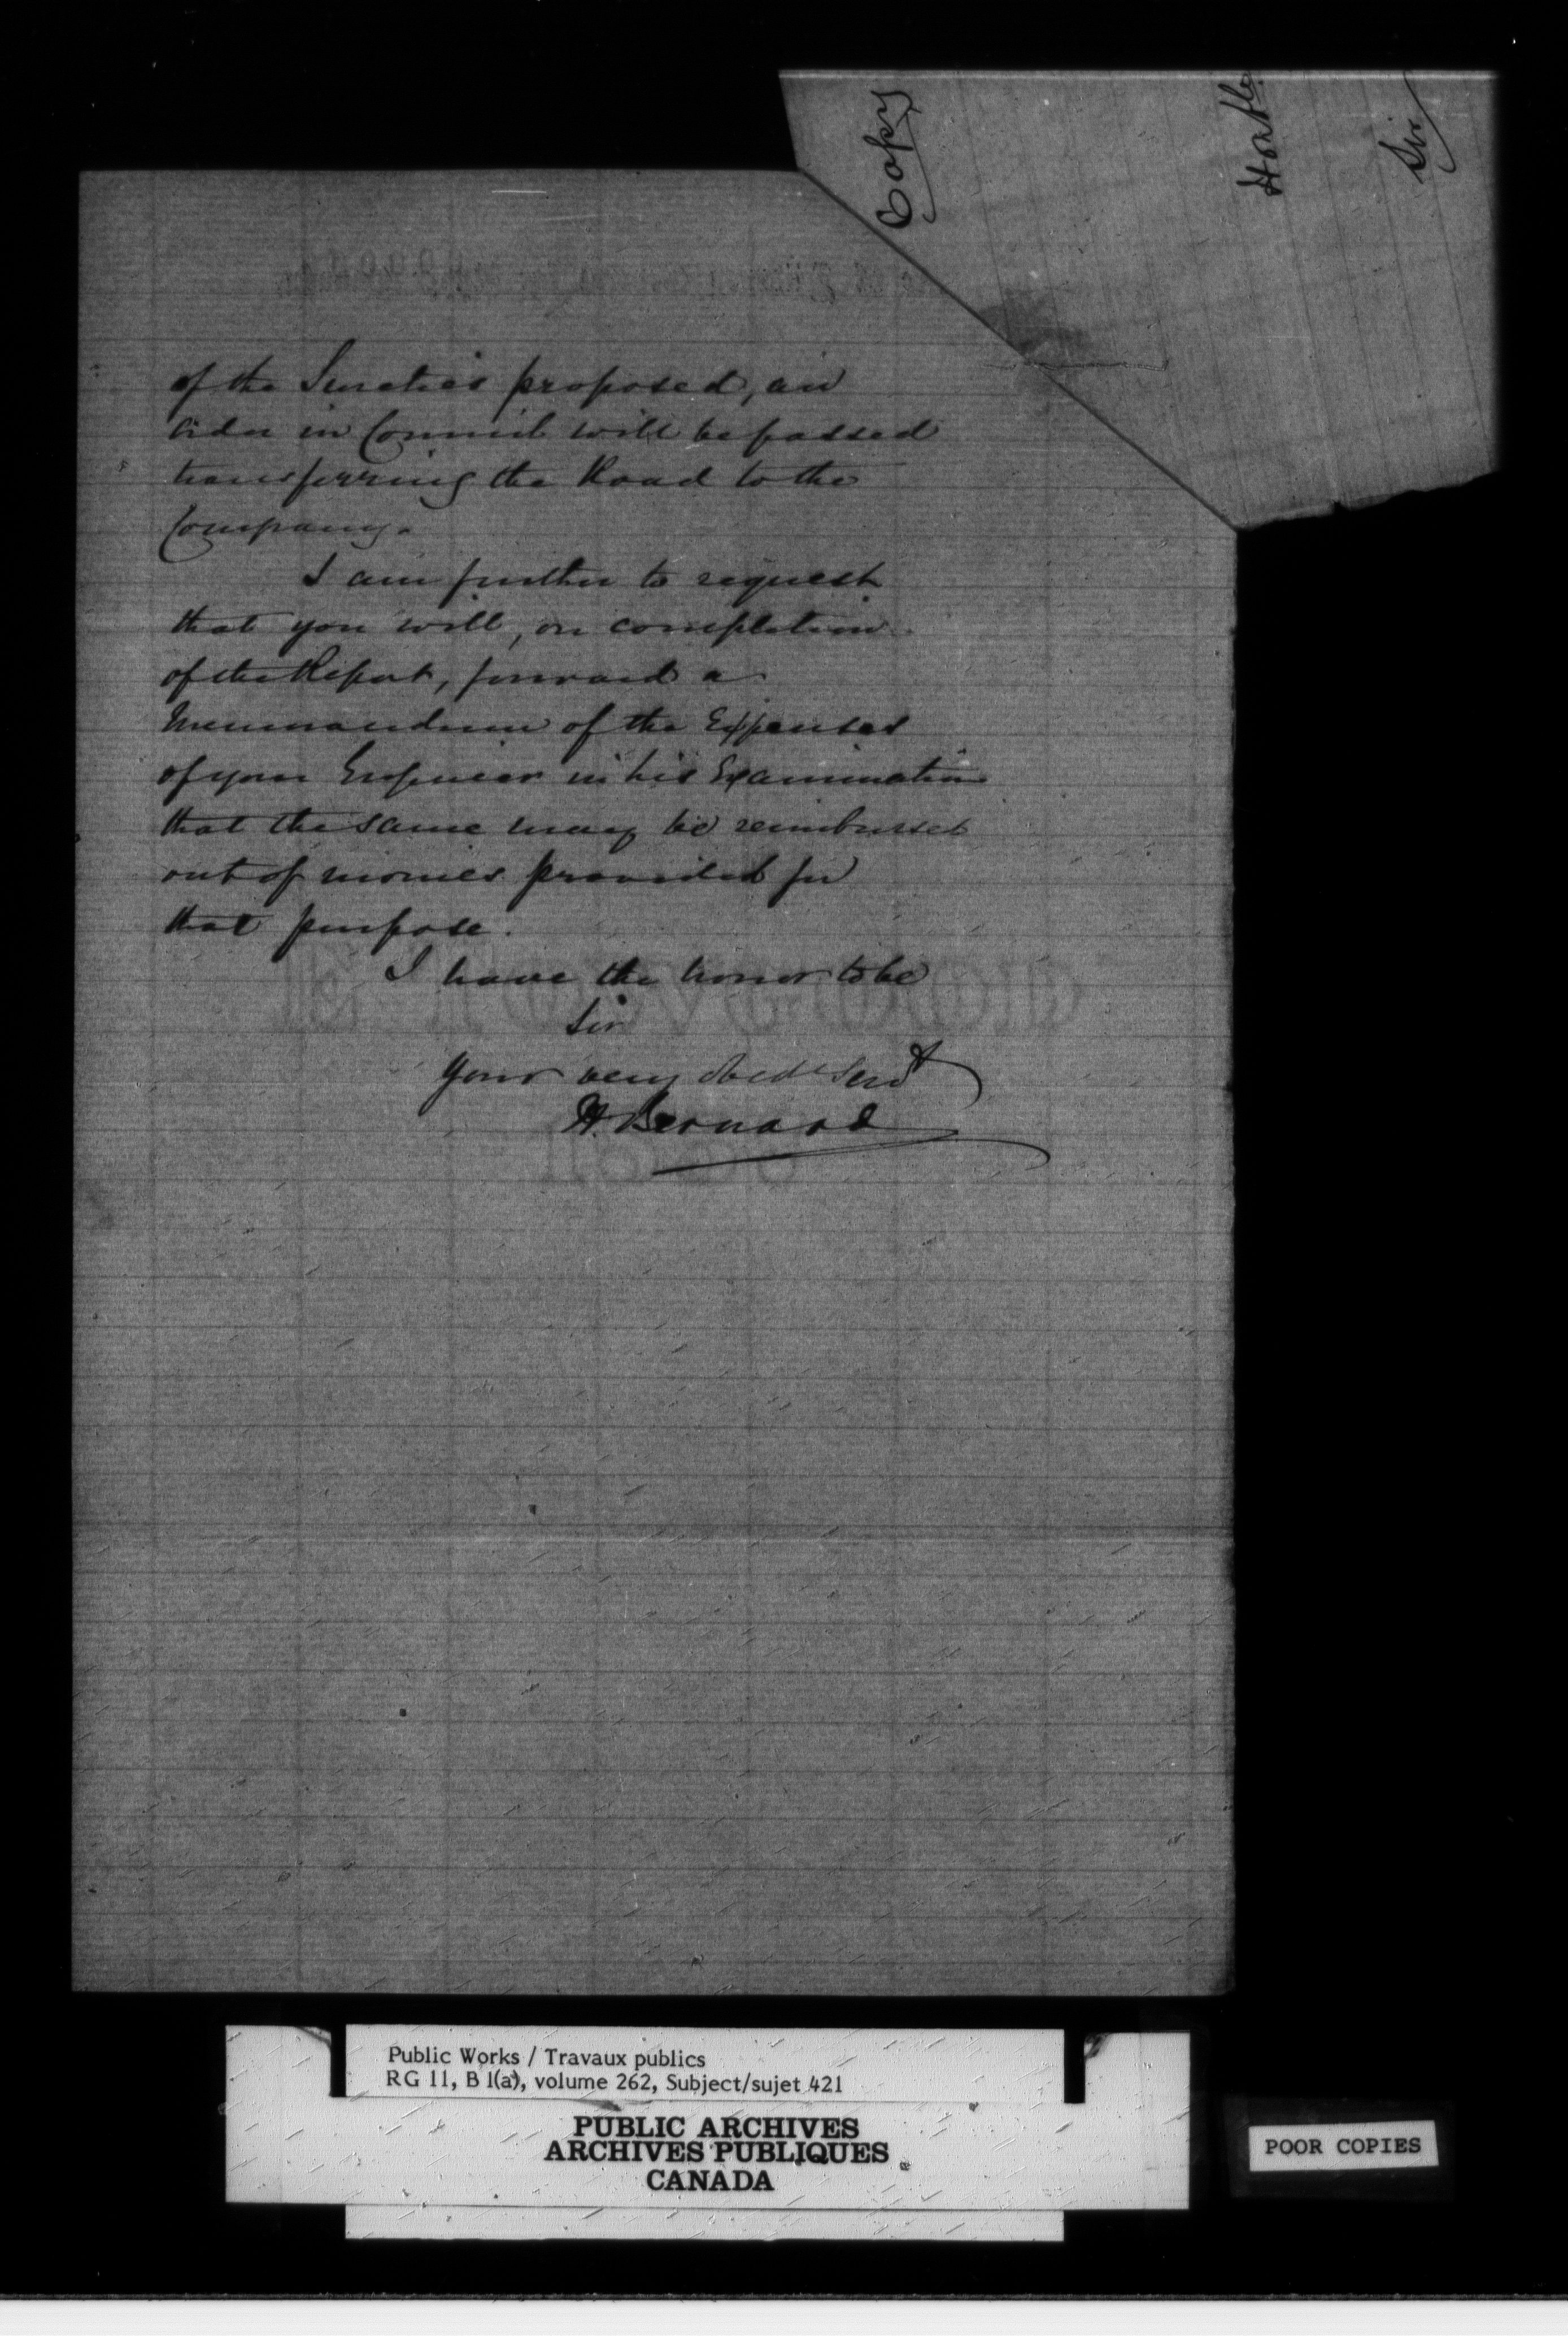 Copy
Honble
Sir
of the Sureties proposed, an
order in Council will be passed
transferring the Road to the
Company.
I am further to request
that you will, on completion
of the Report, forward a
Memorandum of the Expenses
of your Engineer in his Examination
that the same may be reimbursed
out of monies provided for
that purpose.
I have the honor to be
Sir
Your very obedt Servt
H. Bernard
Public Works / Travaux publics
RG 11, B 1(a), volume 262, Subject/sujet 421
PUBLIC ARCHIVES
ARCHIVES PUBLIQUES
CANADA
POOR COPIES